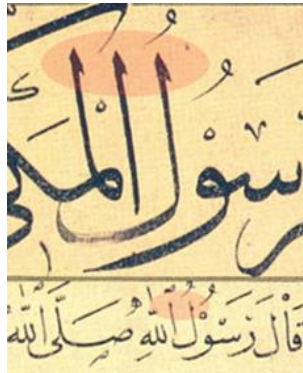 رَسُولُ الْمَكِّي
قَالَ رَسُوْلُ اللهِ صَلَّى اللهُ